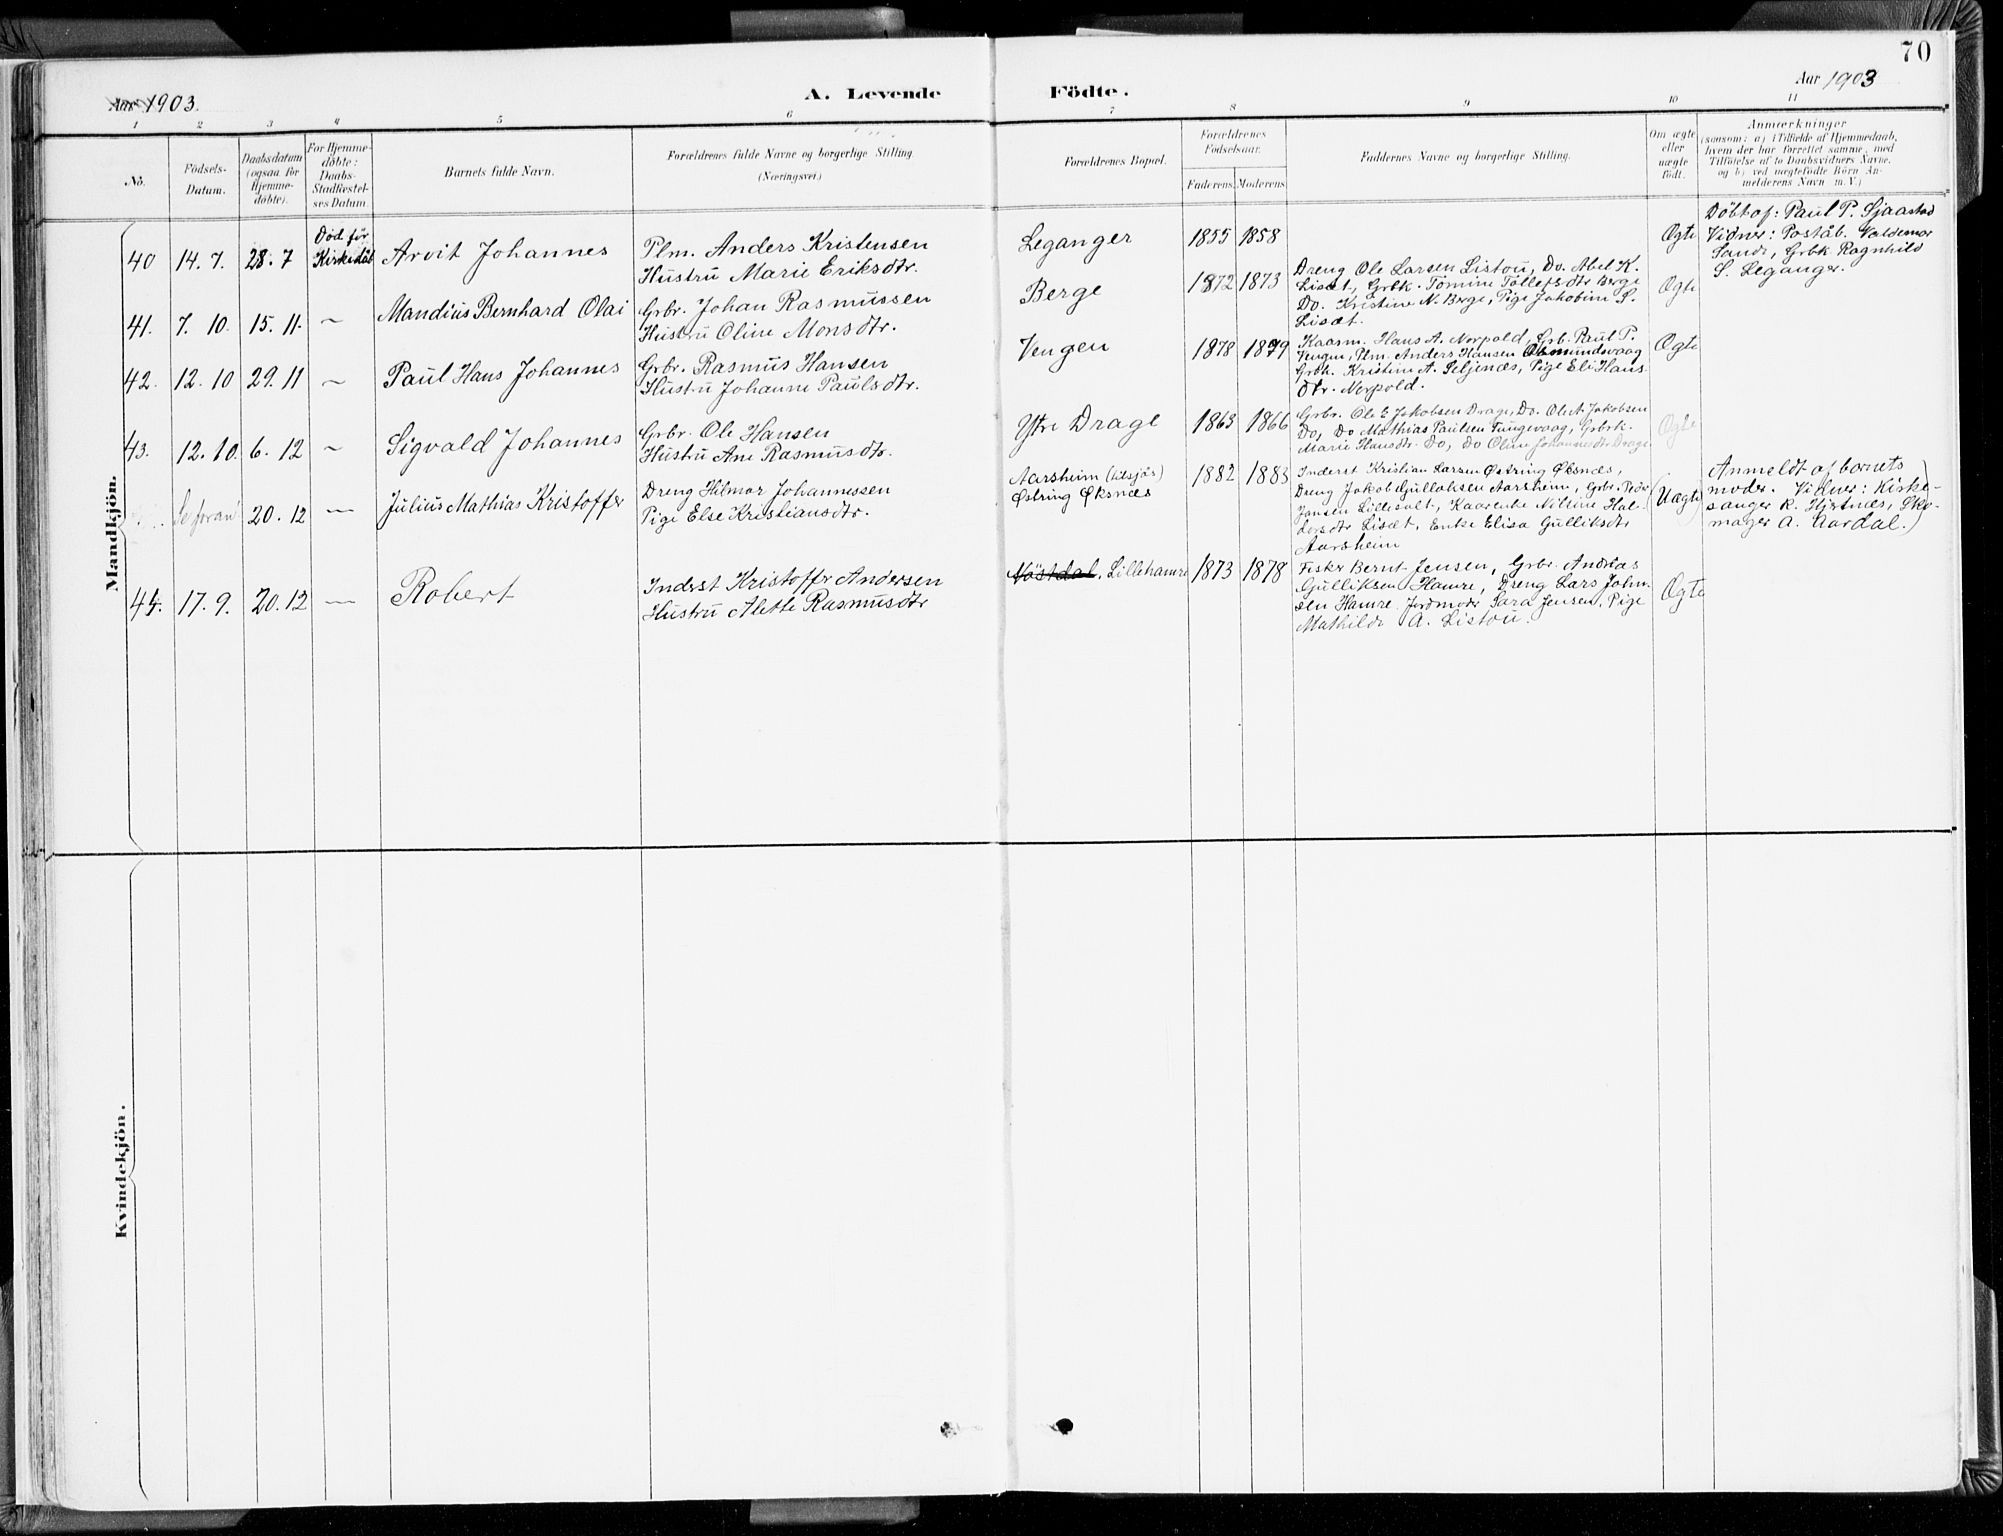 70
Aar 1903.
A. Levende Födte.
Aar 1903
1 2 3 4 5 6 7 8 9 10 11
No.
Födsels-
Datum.
Daabsdatum
(ogsaa for
Hjemme-
døbte).
For Hjemme-
døbte:
Daabs-
Stadfæstel-
ses Datum.
Barnets fulde Navn.
Forældrenes fulde Navne og borgerlige Stilling.
(Næringsvei.)
Forældrenes Bopæl.
Forældrenes
Födselsaar.
Faderens Moderens
Faddernes Navne og borgerlige Stilling.
Om ægte
eller
uægte
født.
Anmærkninger
(saasom: a) i Tilfælde af Hjemmedaab,
hvem der har forrettet samme, med
Tilføielse af to Daabsvidners Navne,
og b) ved uægtefødte Börn An-
melderens Navn m. V.)
Mandkjön.
40 14. 7. 28. 7
Død før
Kirkedåb
Arvit Johannes
Plm. Anders Kristensen
Hustru Marie Eriksdtr.
Leganger
1855 1858
Ægte
Döbt af: Paul P. Sjaastad
Vidner: Poståb. Valdemar
Sande, Grbk Ragnhild
S. Leganger.
41. 7. 10. 15. 11. ~
Mandius Bernhard Olai
Grbr. Johan Rasmussen
Hustru Oline Monsdtr.
Berge
1872 1873
Dreng Ole Larsen Listou, Do. Abel K.
Lisæt, Grbk. Tomine Tollefsdtr Berge
Do. Kristine N. Berge, Pige Jakobine S.
Lisæt.
Ægte
42. 12. 10 29. 11 ~
Paul Hans Johannes
Grbr. Rasmus Hansen
Hustru Johanne Paulsdtr.
Vengen
1878 1879
Kaarm. Hans A. Nerpold, Grb. Paul P.
Vengen, Plm. Anders Hansen Osmundsvaag
Grbk. Kristine A. Seljenæs, Pige Eli Hans
dtr. Nerpold.
Ægte
43. 12. 10. 6. 12 ~
Sigvald Johannes
Grbr. Ole Hansen
Hustru Ane Rasmusdtr.
Ytre Drage
1863 1866
Grbr. Ole E Jakobsen Drage, Do. Ole A. Jakobsen
Do, Do Mathias Paulsen Tungevaag, Grbrk.
Marie Hansdtr. Do, Do Oline Johannesdtr Drage.
Ægte
Se foran 20. 12 —
Julius Mathias Kristoffer
Dreng Hilmar Johannessen
Pige Else Kristiansdtr.
Aarsheim (tilsjös)
Østring Øksnæs
1882 1883
Inderst Kristian Larsen Østring Øksnæs,
Dreng Jakob Gulliksen Aarsheim, Grbr. Peder
Jansen Lillesalt, Kaarenke Nilline Hal-
dorsdtr Lisæt, Enke Elisa Gulliksdtr
Aarsheim
(Uægte)
Anmeldt af barnets
moder. Vidner: Kirke-
sanger R. Hjertnes, Sko-
mager A. Aardal.)
44. 17. 9. 20. 12 —
Robert
Inderst Kristoffer Andersen
Hustru Alette Rasmusdtr
Nöstdal, Lillehamre
1873 1878
Fisker Bernt Jensen, Grbr. Andreas
Gulliksen Hamre, Dreng Lars John-
sen Hamre. Jordmoder Sara Jensen, Pige
Mathilde A. Listou.
Ægte
Kvindekjön.